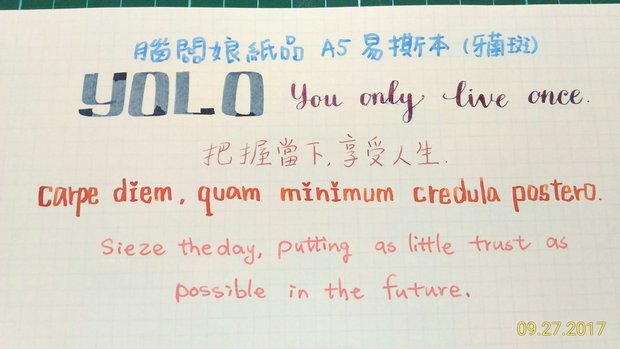 腦闆娘紙品 A5 易撕本 (牙菌斑)
YOLO You only live once.
把握當下,享受人生.
carpe diem, quam minimum credula postero.
Sieze the day, putting as little trust as
possible in the future.
09.27.2017